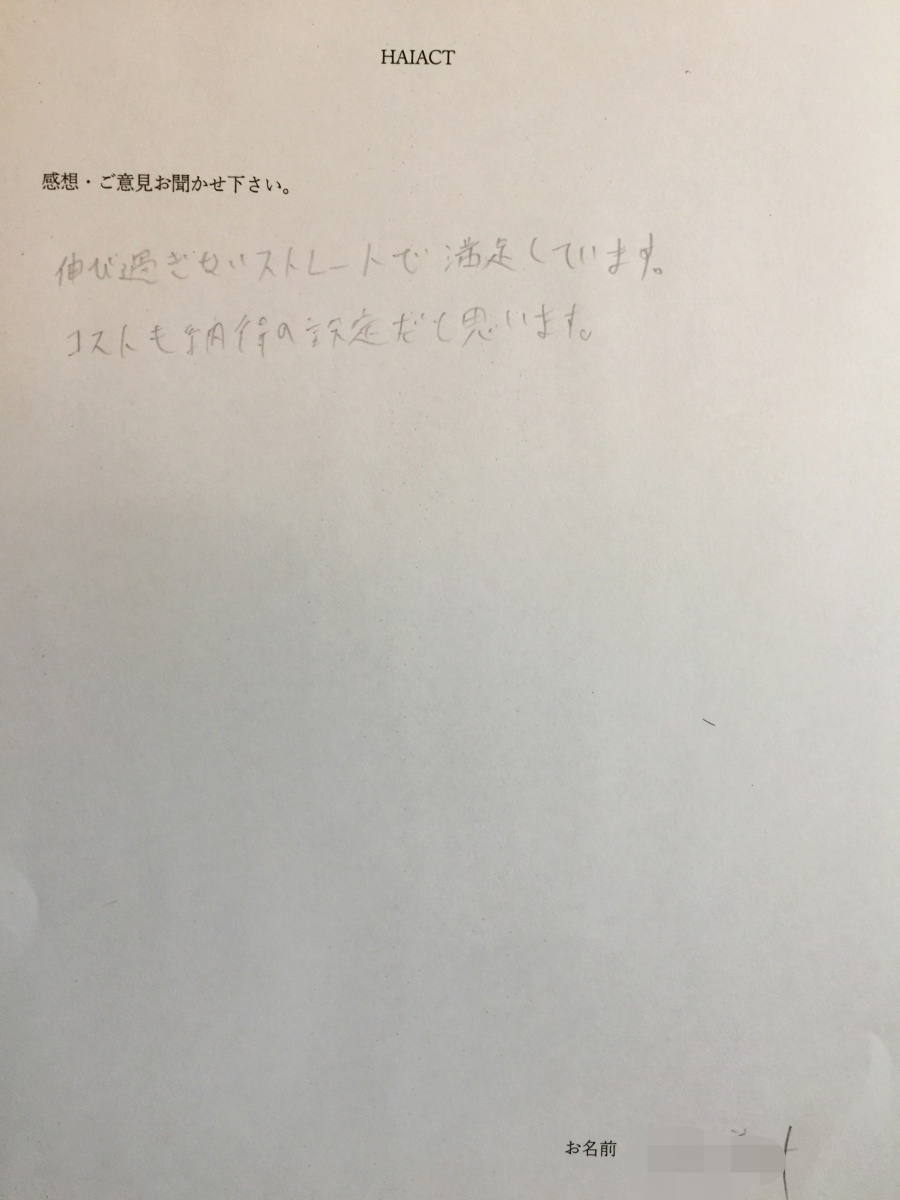 HAIACT
感想・ご意見お聞かせ下さい。
伸び過ぎないストレートで満足しています。
コストも納得の設定だと思います。
お名前